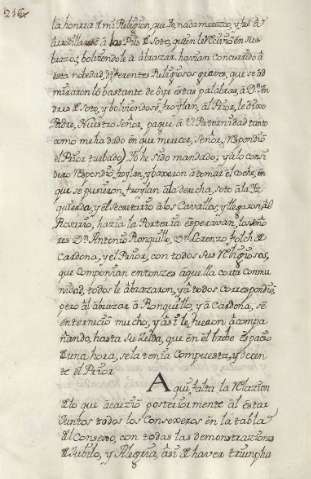 216
la honra a mi Religion, que
a los Pies a Soto, quien le recibió en sus
brazos, bolviendole a abrazar, havian concurrido a
esta novedad, diferentes Religiosos graves, que se ad
miraron lo bastante de oir estas palabras, a Dn
de Soto, y bolviendose froylan, al Prior, le dixo
Padre, Nuestro Señor, pague a V. Paternidad tanto
como me ha dado en que merecer, Señor, respondio
el Prior turbado, Yo he sido mandado, y a lo con
dero respondio froylan, y pararon a tomar el coche, en
que se pusieron, froylan a la derecha, soto a la Yz
quierda, y el secretario a los Cavallos, y llegaron al
Rosario, hacia la Porteria esperavan, los seño
res Dn Antonio Ronquillo, Dn Lorenzo folch de
Cardona, y el Prior, con todos sus Religiosos,
que componian entonzes aquella corta comu
nidad, todos le abrazaron, y a todos correspondio,
pero al abrazar a Ronquillo, y a Cardona, se
enternecio mucho, y assi le fueron acompa
ñando, hasta su celda, que en el brebe espacio
de una hora, se la tenia compuesta, y decen
te el Prior
Aqui falta la Relacion
de lo que acaecio posteriormente al estar
juntos todos los Consexeros en la tabla
del Consexo, con todas las demonstraciones
de Jubilo, y Alegria, assi de haver triumpha